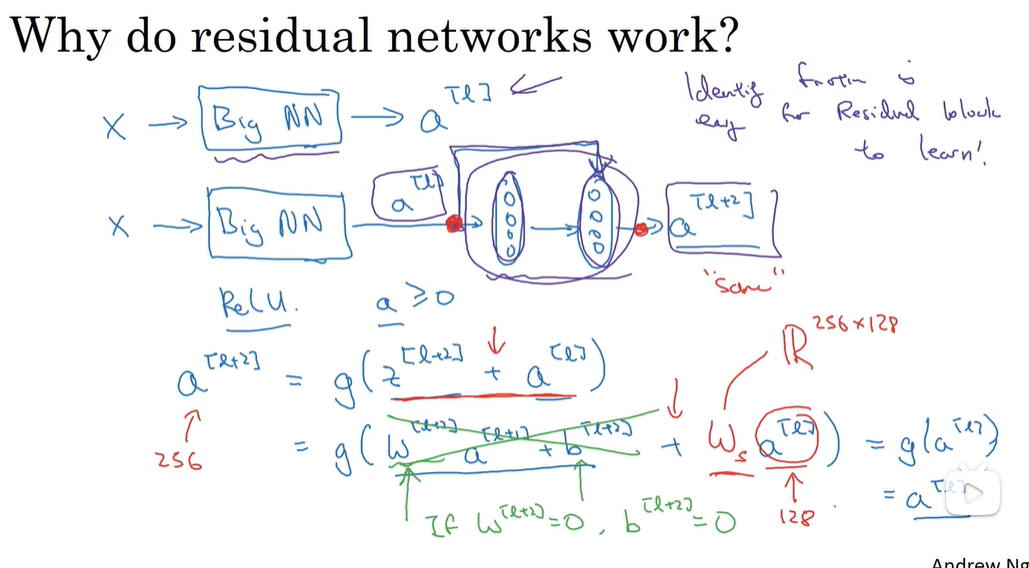 Why do residual networks work?
X → Big NN → a^[l] ←
Identity function is
easy for Residual block
to learn!
X → Big NN → a^[l] → → a^[l+2]
"Same"
ReLU. a ≥ 0
ℝ^256×128
a^[l+2] = g(z^[l+2] + a^[l])
= g(W^[l+2] a^[l+1] + b^[l+2] + W_s a^[l]) = g(a^[l])
256
= a^[l]
If W^[l+2]=0, b^[l+2]=0
128
Andrew Ng